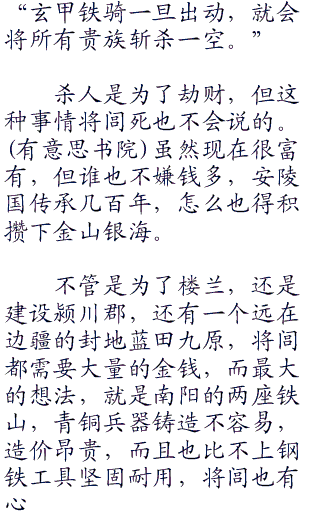 “玄甲铁骑一旦出动，就会
将所有贵族斩杀一空。”
杀人是为了劫财，但这
种事情将闾死也不会说的。
(有意思书院)虽然现在很富
有，但谁也不嫌钱多，安陵
国传承几百年，怎么也得积
攒下金山银海。
不管是为了楼兰，还是
建设颍川郡，还有一个远在
边疆的封地蓝田九原，将闾
都需要大量的金钱，而最大
的想法，就是南阳的两座铁
山，青铜兵器铸造不容易，
造价昂贵，而且也比不上钢
铁工具坚固耐用，将闾也有
心